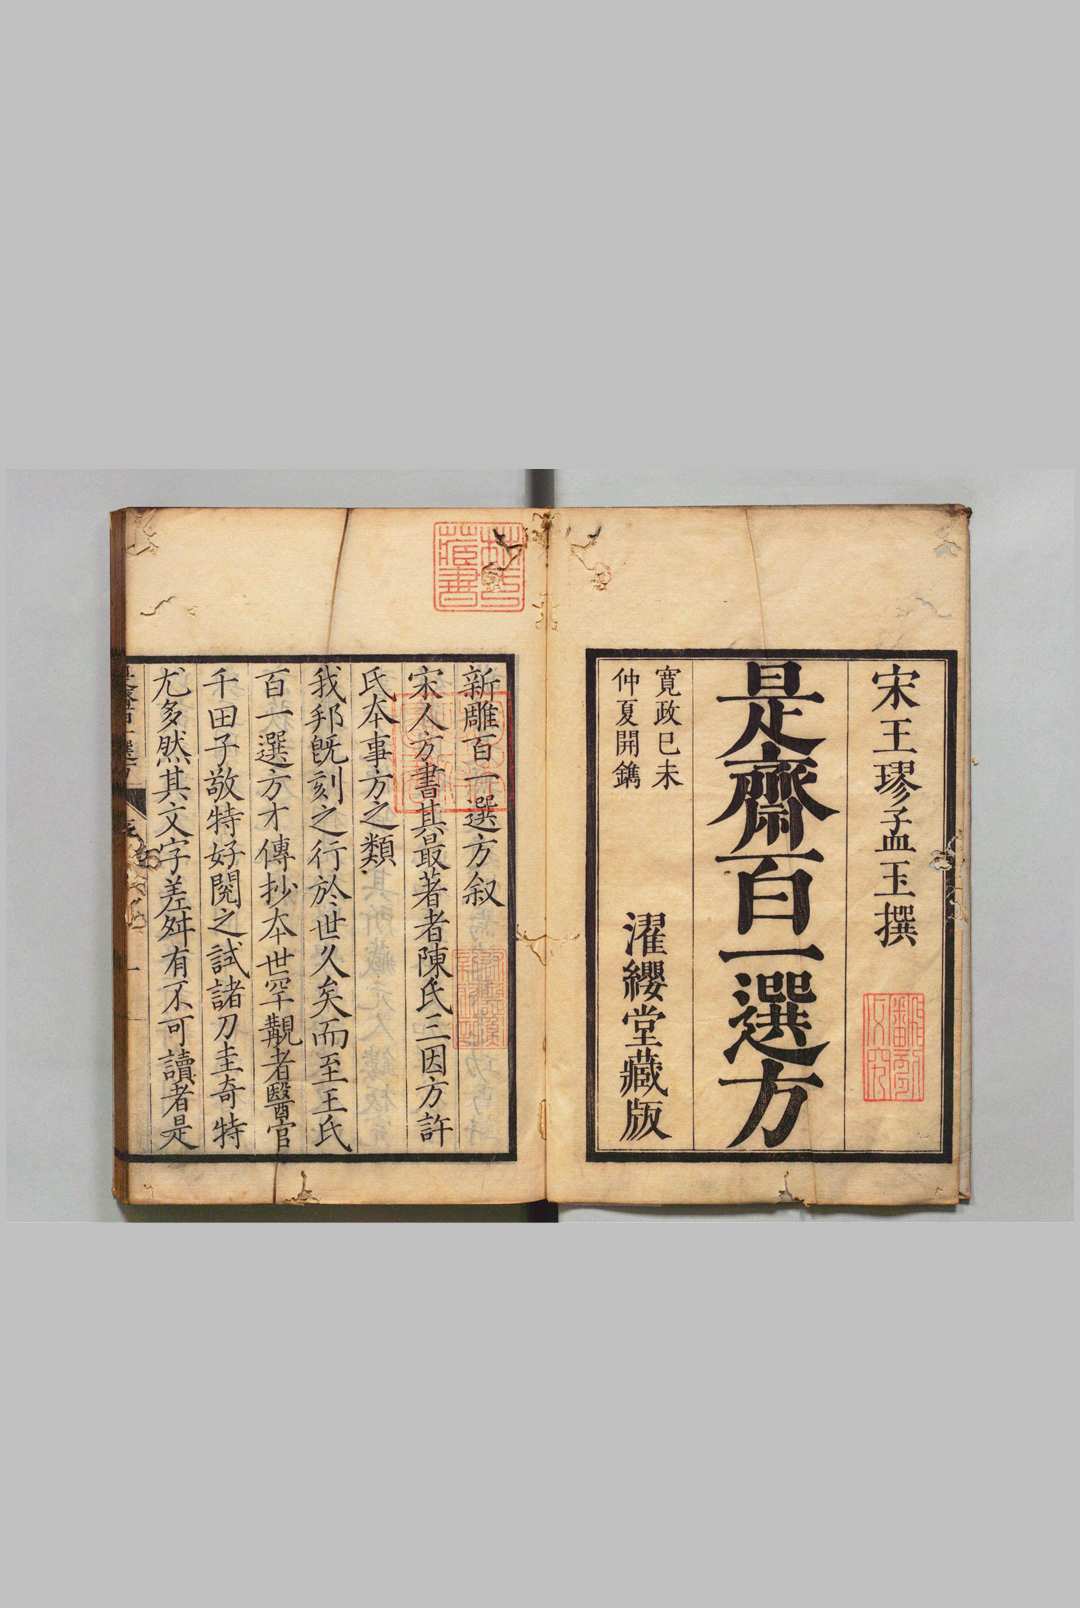 宋王璆孟玉撰
是齋百一選方
寛政己未
仲夏開鐫
濯纓堂藏版
新雕百一選方叙
宋人方書其最著者陳氏三因方許
氏本事方之類
我邦既刻之行於世久矣而至王氏
百一選方才傳抄本世罕覯者醫官
千田子敬特好閱之試諸刀圭奇特
尤多然其文字差舛有不可讀者是